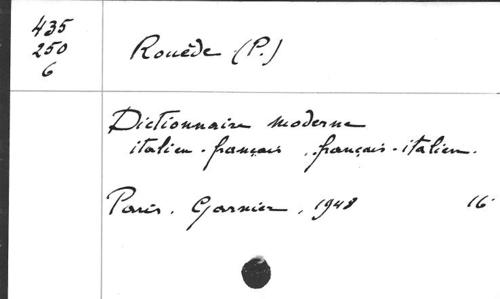 435
250
6
Rouède (P.)
Dictionnaire moderne
italien-français, français-italien.
Paris, Garnier, 1948 16